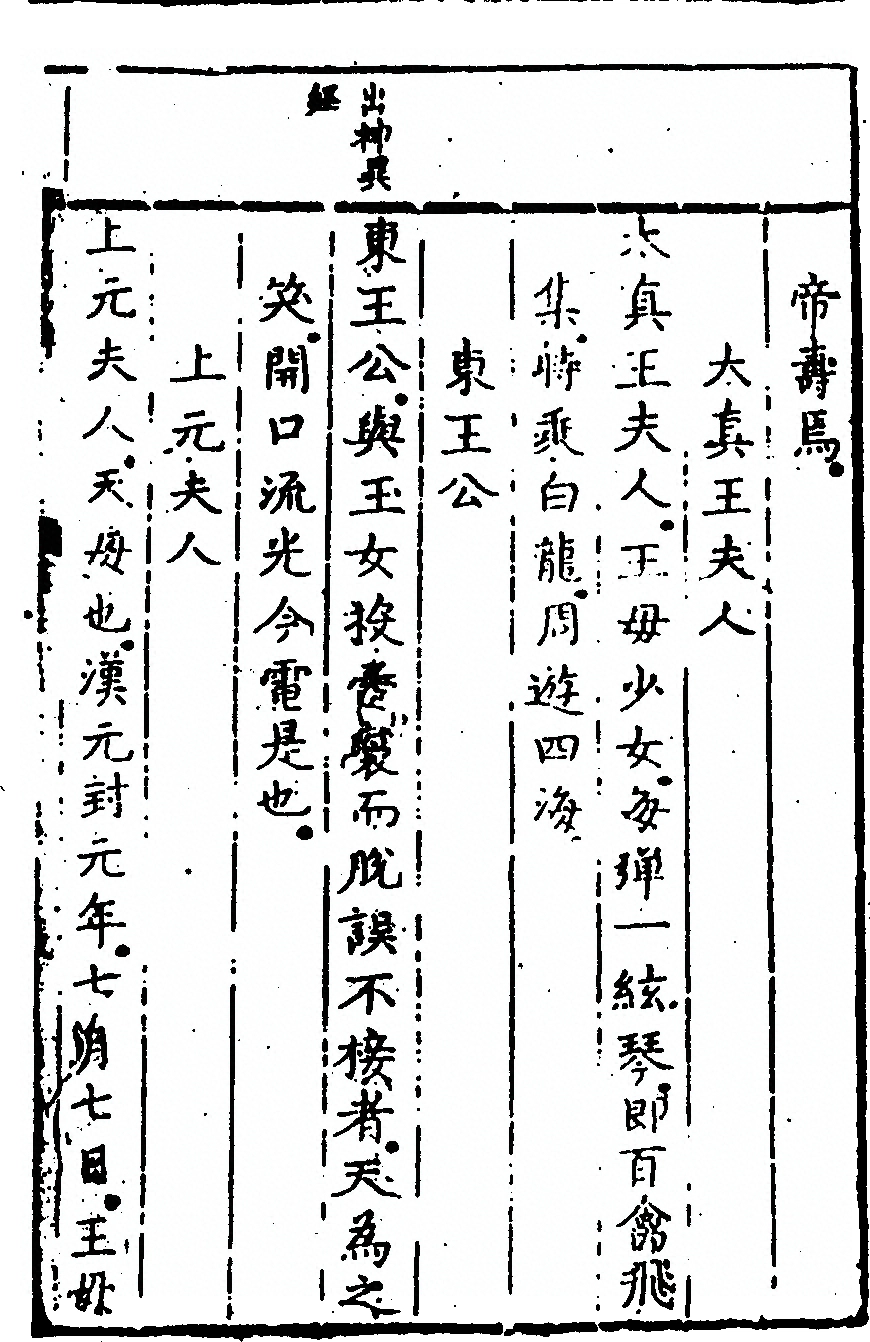 帝壽焉
太真王夫人
太真王夫人王母少女每彈一絃琴即百禽飛
集時乘白龍周遊四海
東王公
出神異
經
東王公與玉女投而脫誤不接者天為之
笑開口流光今電是也
上元夫人
上元夫人天母也漢元封元年七月七日王母